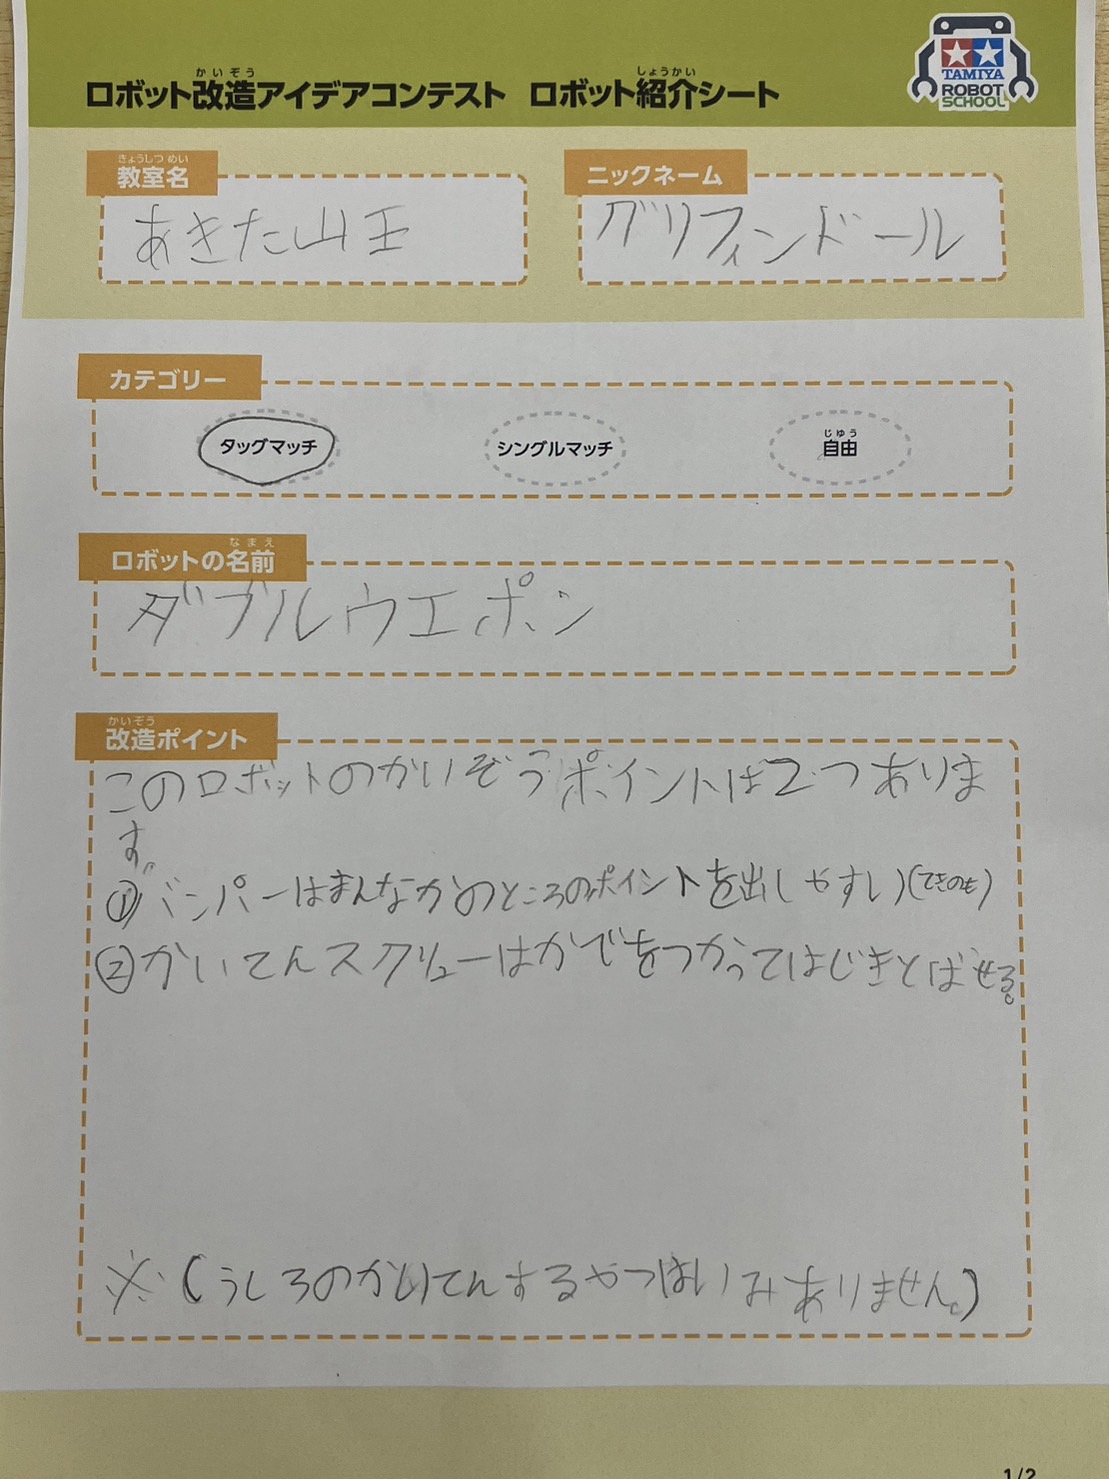 かいぞう しょうかい
ロボット改造アイデアコンテスト ロボット紹介シート
TAMIYA
ROBOT
SCHOOL
きょうしつ めい
教室名
ニックネーム
あきた山王
グリフィンドール
カテゴリー
タッグマッチ
シングルマッチ
じゆう
自由
なまえ
ロボットの名前
ダブルウエポン
かいぞう
改造ポイント
このロボットのかいぞうポイントは2つありま
す。
①バンパーはまんなかのところのポイントを出しやすい(てきのも)
②かいてんスクリューはかどをつかってはじきとばせる。
※(うしろのかいてんするやつはいみありません。)
1/2